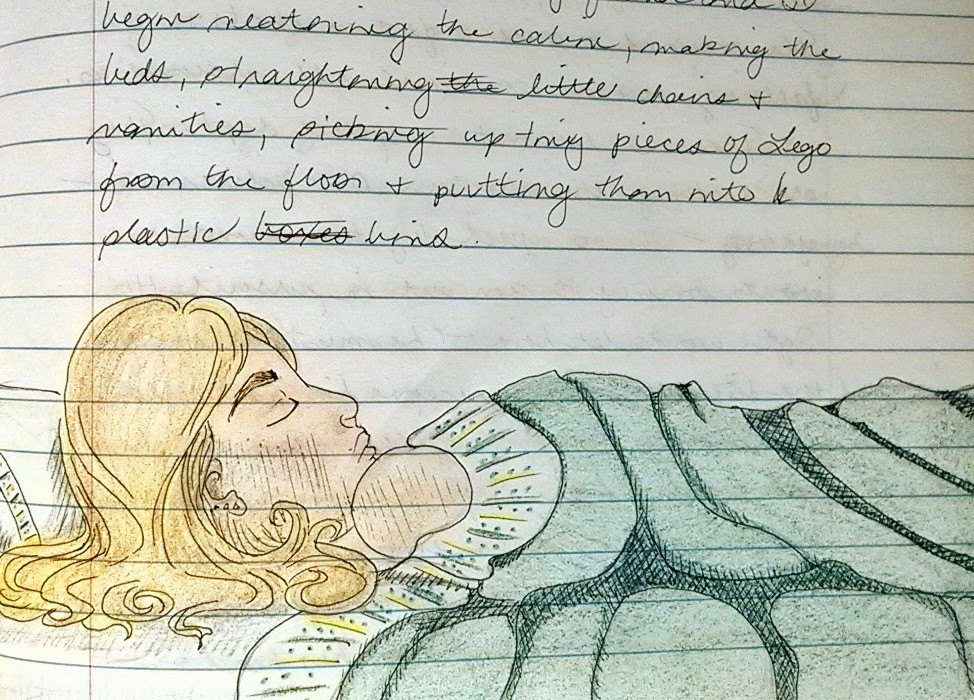 begin neatening the cabin, making the
beds, straightning the little chairs +
vanities, picking up tiny pieces of Lego
from the floor + putting them into
plastic boxes bins.